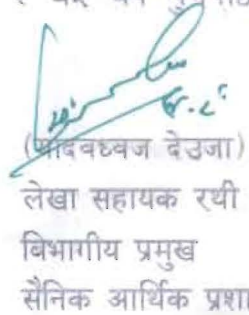 (यादवध्वज देउजा)
लेखा सहायक रथी
विभागीय प्रमुख
सैनिक आर्थिक प्रशा